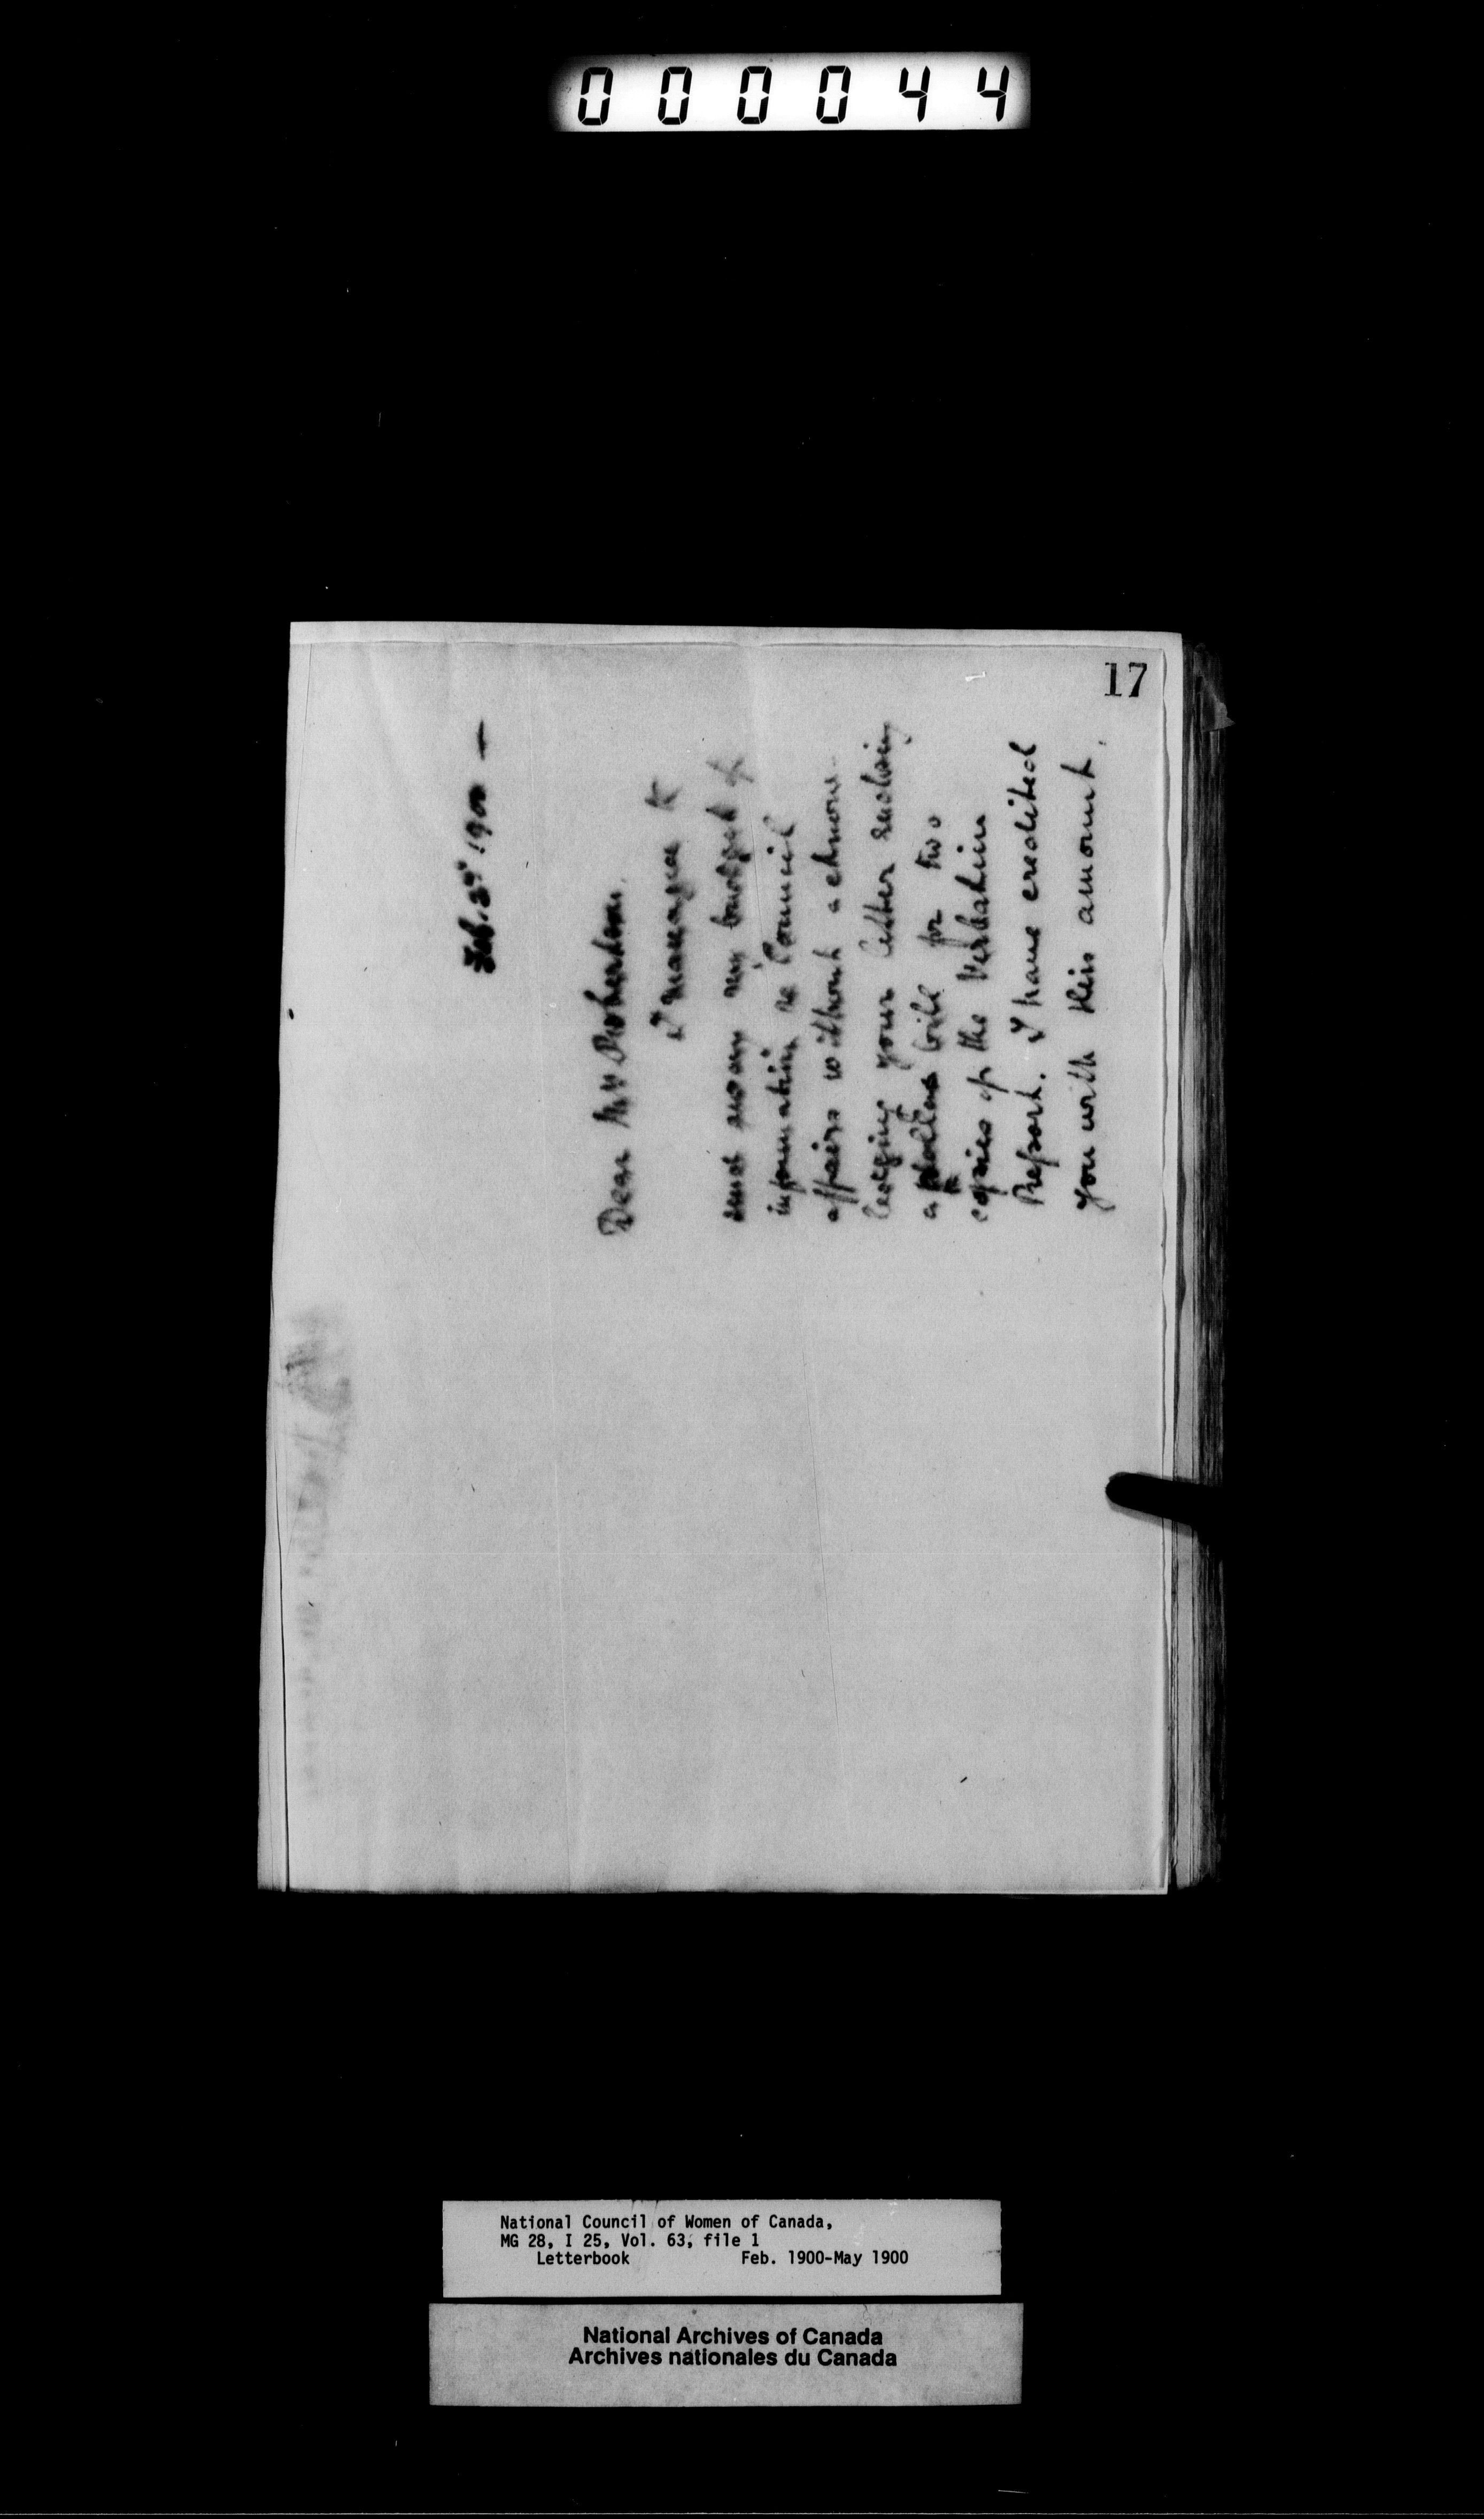 000044
17
Feb. 2nd 1900 —
Dear Mrs Robertson.
I managed to
send away my budget of
information re Council
affairs without acknow-
ledging your letter enclosing
a dollar bill for two
copies of the Verbatim
Report. I have credited
you with this amount.
National Council of Women of Canada,
MG 28, I 25, Vol. 63, file 1
Letterbook Feb. 1900-May 1900
National Archives of Canada
Archives nationales du Canada